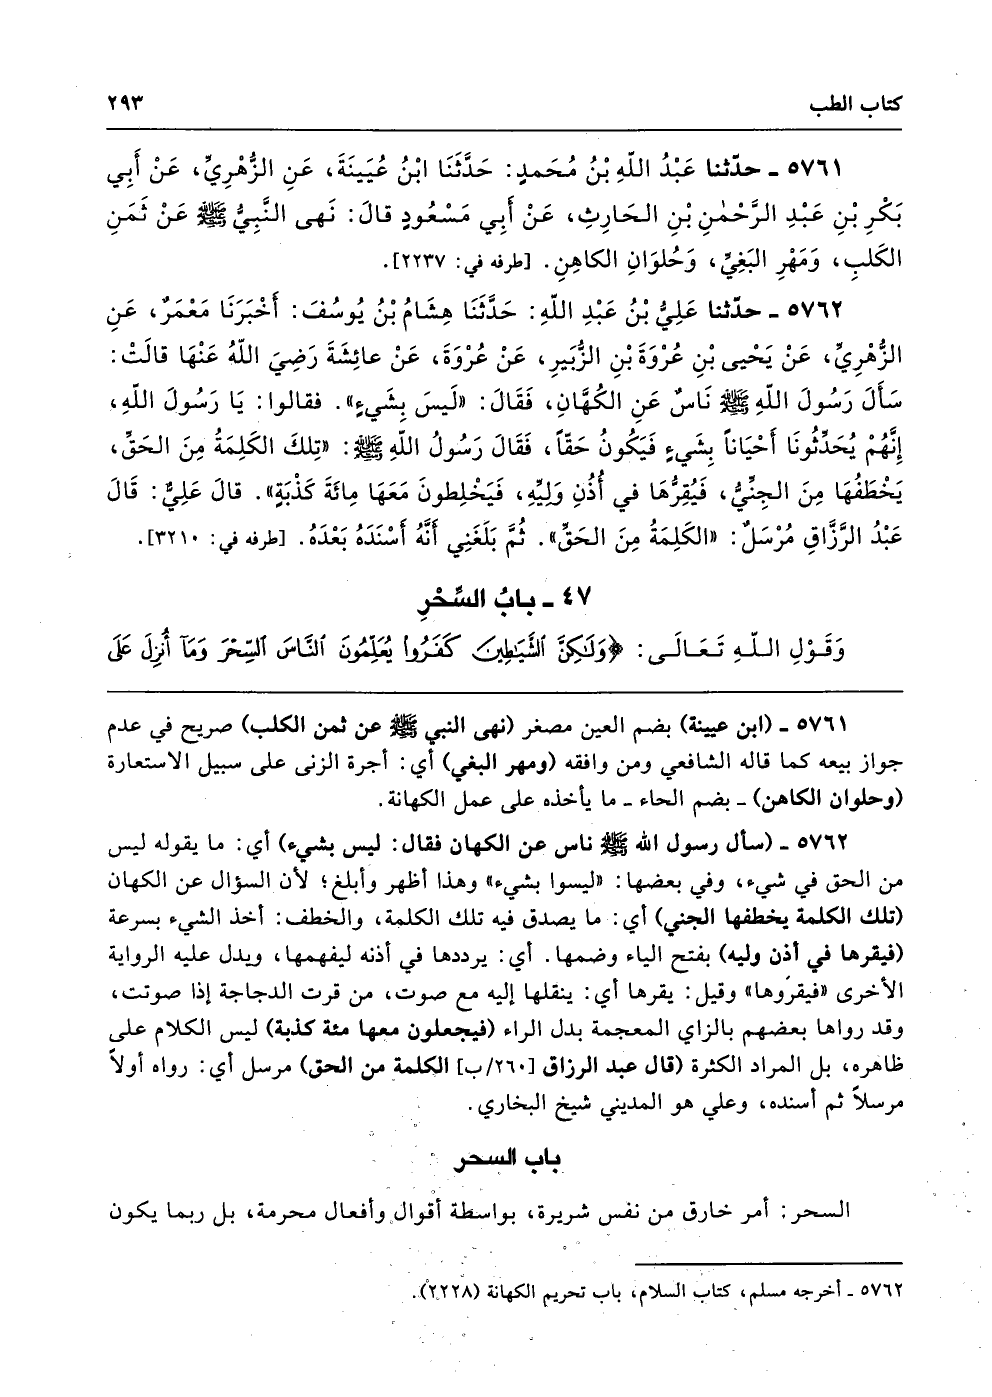 كتاب الطب ٢٩٣
٥٧٦١ ـ حدّثنا عَبْدُ اللّهِ بْنُ مُحَمدٍ: حَدَّثَنَا ابْنُ عُيَينَةَ، عَنِ الزُّهْرِيِّ، عَنْ أَبِي
بَكْرِ بْنِ عَبْدِ الرَّحْمٰنِ بْنِ الحَارِثِ، عَنْ أَبِي مَسْعُودٍ قالَ: نَهى النَّبِيُّ ﷺ عَنْ ثَمَنِ
الكَلبِ، وَمَهْرِ البَغِيِّ، وَحُلوَانِ الكاهِنِ. [طرفه في: ٢٢٣٧].
٥٧٦٢ ـ حدّثنا عَلِيُّ بْنُ عَبْدِ اللّهِ: حَدَّثَنَا هِشَامُ بْنُ يُوسُفَ: أَخْبَرَنَا مَعْمَرٌ، عَنِ
الزُّهْرِيِّ، عَنْ يَحْيى بْنِ عُرْوَةَ بْنِ الزُّبَيرِ، عَنْ عُرْوَةَ، عَنْ عائِشَةَ رَضِيَ اللّهُ عَنْهَا قالَتْ:
سَأَلَ رَسُولَ اللّهِ ﷺ نَاسٌ عَنِ الكُهَّانِ، فَقَالَ: «لَيسَ بِشَيءٍ». فقالوا: يَا رَسُولَ اللّهِ،
إِنَّهُمْ يُحَدِّثُونَا أَحْيَاناً بِشَيءٍ فَيَكُونُ حَقّاً، فَقَالَ رَسُولُ اللّهِ ﷺ: «تِلكَ الكَلِمَةُ مِنَ الحَقِّ،
يَخْطَفُهَا مِنَ الجِنِّيُّ، فَيُقِرُّهَا في أُذُنِ وَلِيِّهِ، فَيَخْلِطونَ مَعَهَا مِائَةَ كَذْبَةٍ». قالَ عَلِيٌّ: قَالَ
عَبْدُ الرَّزَّاقِ مُرْسَلٌ: «الكَلِمَةُ مِنَ الحَقِّ». ثُمَّ بَلَغَنِي أَنَّهُ أَسْنَدَهُ بَعْدَهُ. [طرفه في: ٣٢١٠].
٤٧ ـ بابُ السِّحْرِ
وَقَوْلِ اللّهِ تَعَالَى: ﴿وَلَٰكِنَّ ٱلشَّيَٰطِينَ كَفَرُوا۟ يُعَلِّمُونَ ٱلنَّاسَ ٱلسِّحْرَ وَمَآ أُنزِلَ عَلَى
٥٧٦١ ـ (ابن عيينة) بضم العين مصغر (نهى النبي ﷺ عن ثمن الكلب) صريح في عدم
جواز بيعه كما قاله الشافعي ومن وافقه (ومهر البغي) أي: أجرة الزنى على سبيل الاستعارة
(وحلوان الكاهن) ـ بضم الحاء ـ ما يأخذه على عمل الكهانة.
٥٧٦٢ ـ (سأل رسول الله ﷺ ناس عن الكهان فقال: ليس بشيء) أي: ما يقوله ليس
من الحق في شيء، وفي بعضها: «ليسوا بشيء» وهذا أظهر وأبلغ؛ لأن السؤال عن الكهان
(تلك الكلمة يخطفها الجني) أي: ما يصدق فيه تلك الكلمة، والخطف: أخذ الشيء بسرعة
(فيقرها في أذن وليه) بفتح الياء وضمها. أي: يرددها في أذنه ليفهمها، ويدل عليه الرواية
الأخرى «فيقروها» وقيل: يقرها أي: ينقلها إليه مع صوت، من قرت الدجاجة إذا صوتت،
وقد رواها بعضهم بالزاي المعجمة بدل الراء (فيجعلون معها مئة كذبة) ليس الكلام على
ظاهره، بل المراد الكثرة (قال عبد الرزاق [٢٦٠/ب] الكلمة من الحق) مرسل أي: رواه أولاً
مرسلاً ثم أسنده، وعلي هو المديني شيخ البخاري.
باب السحر
السحر: أمر خارق من نفس شريرة، بواسطة أقوال وأفعال محرمة، بل ربما يكون
٥٧٦٢ ـ أخرجه مسلم، كتاب السلام، باب تحريم الكهانة (٢٢٢٨).